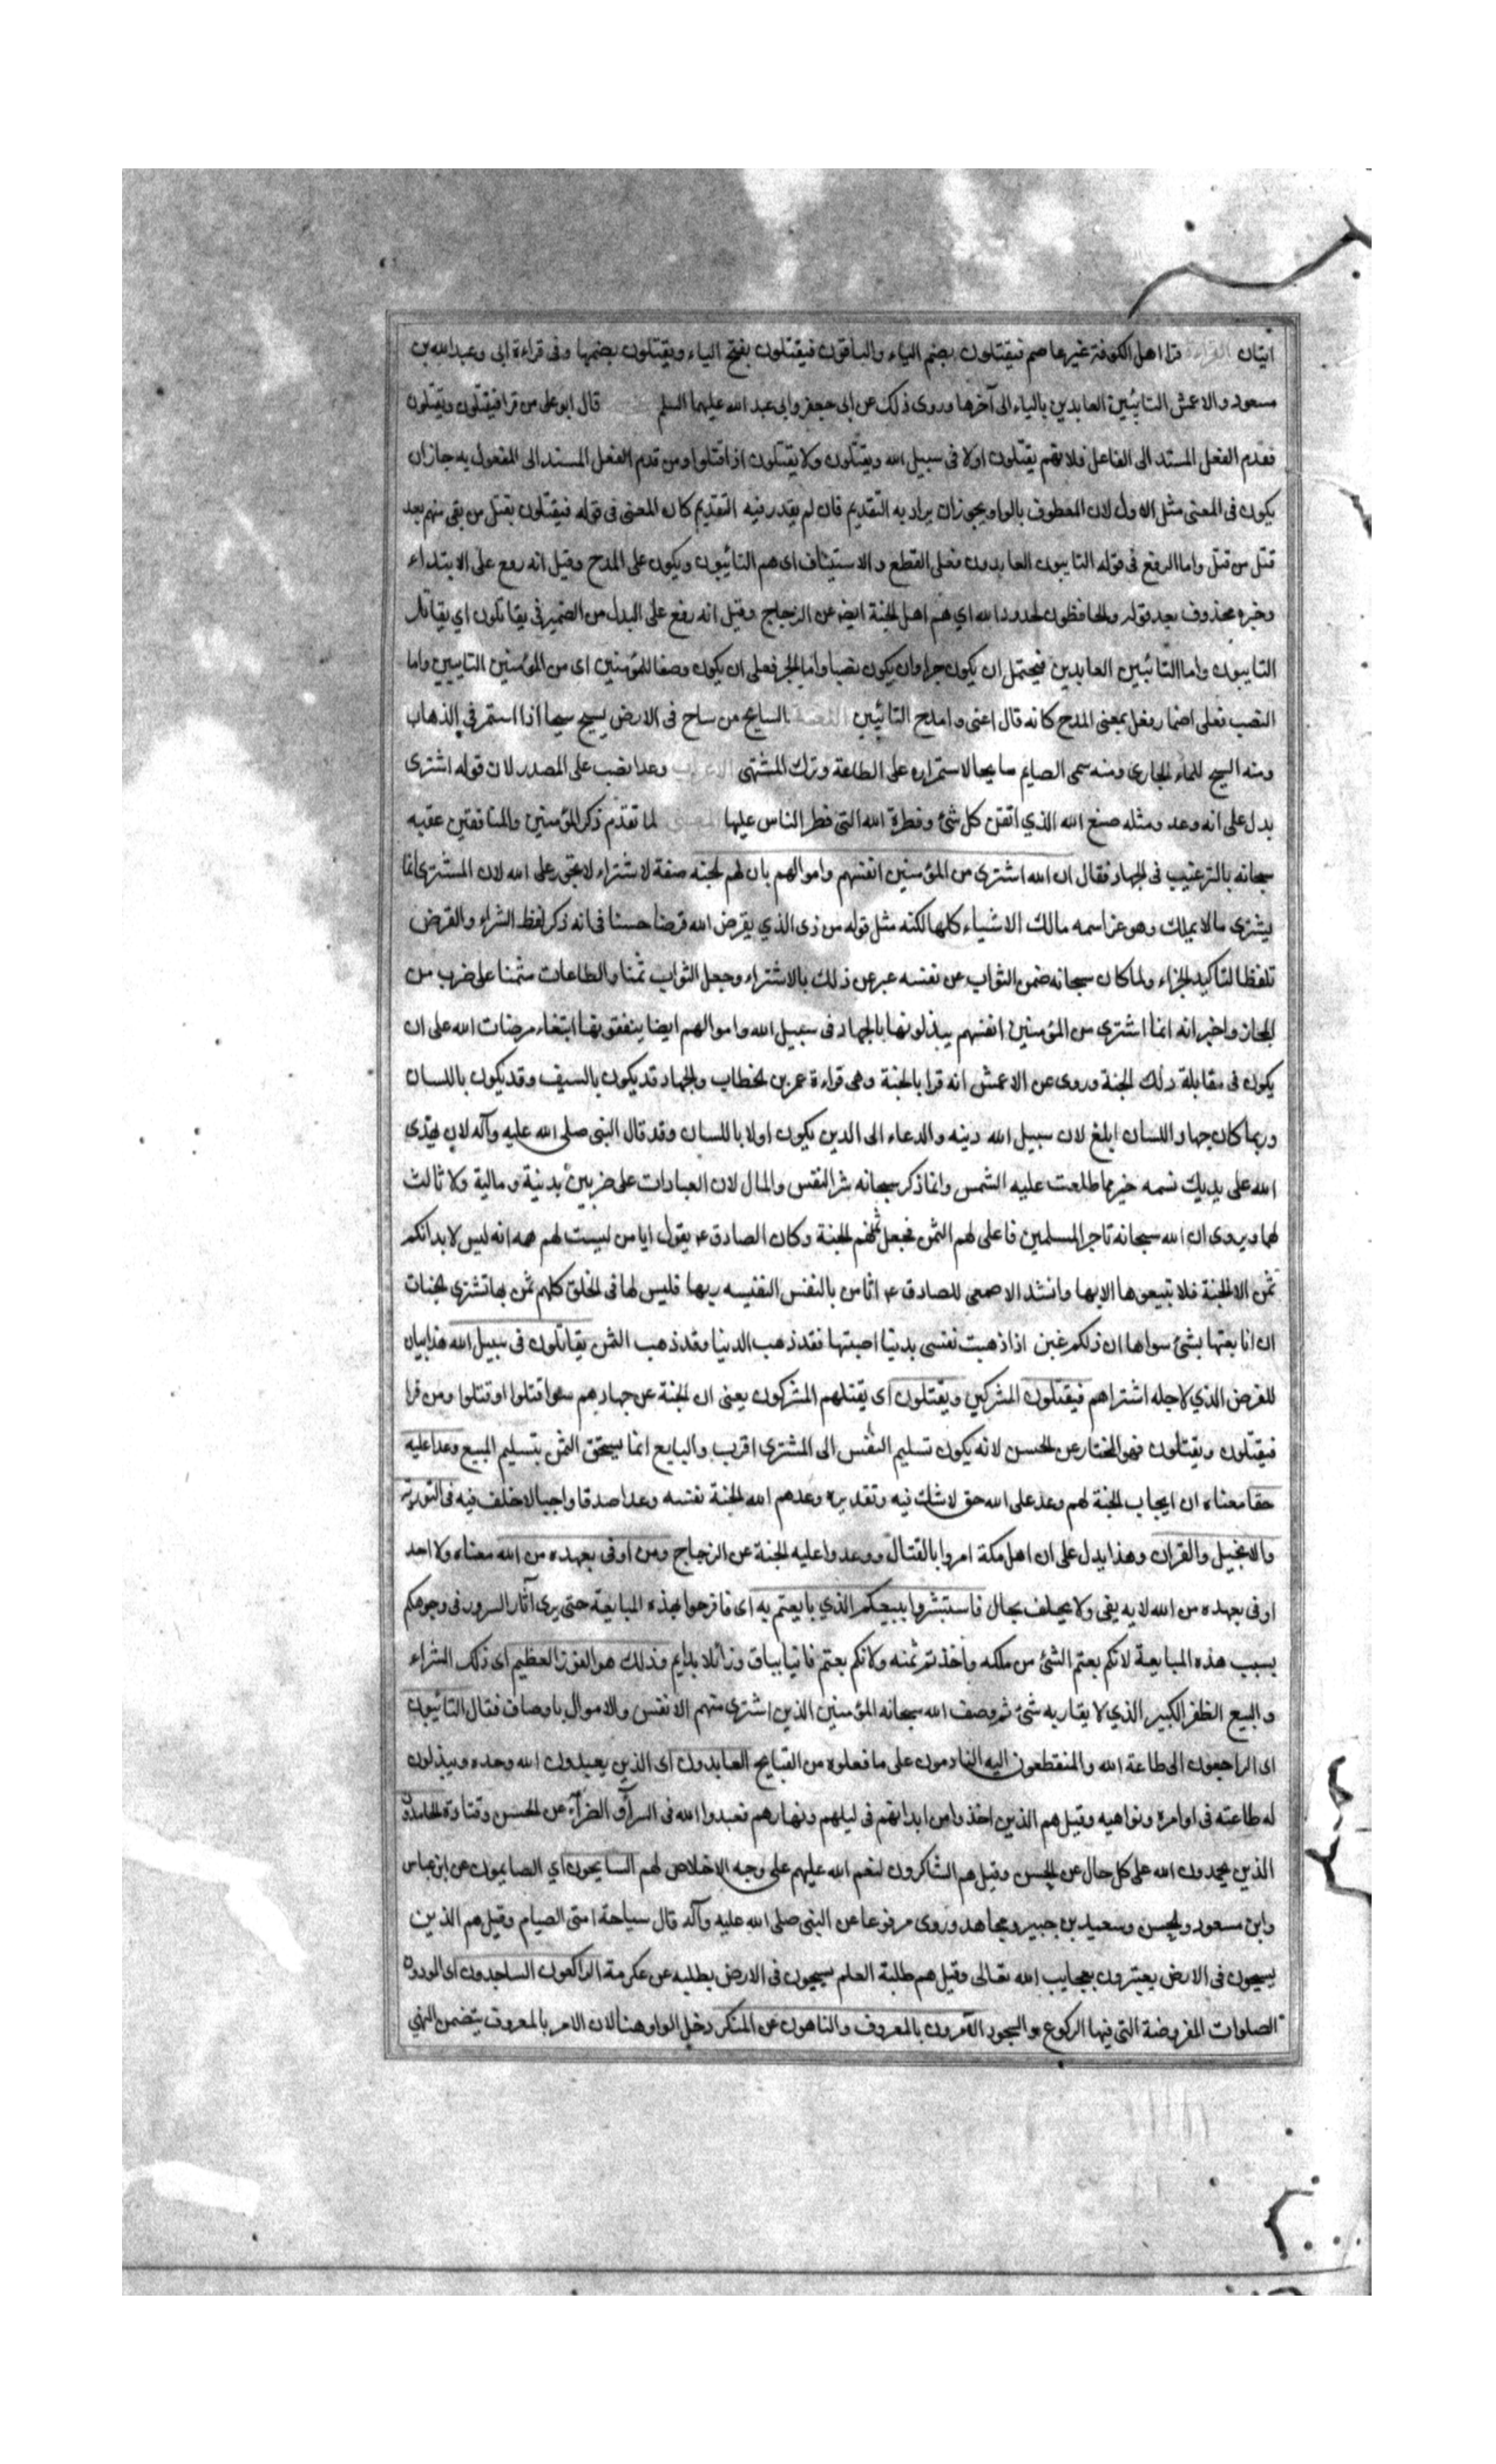 ايتان القراءة قرا اهل الكوفة غير عاصم فيقتلون بضم الياء والباقون فيقتلون بفتح الياء ويقتلون بضمها وفى قراءة ابى وعبدالله بن
مسعود والاعمش التائبين العابدين بالياء الى آخرها وروى ذلك عن ابى جعفر وابى عبد الله عليهما السلم قال ابو على من قرا فيقتلون ويقتلون
فقدم الفعل المسند الى الفاعل فلانهم يقتلون اولا فى سبيل الله ويقتلون ولا يقتلون اذا قتلوا ومن قدم الفعل المسند الى المفعول به جاز ان
يكون فى المعنى مثل الاول لان المعطوف بالواو يجوز ان يراد به التقديم فان لم يقدر فيه التقديم كان المعنى فى قوله فيقتلون يقتل من بقى منهم بعد
قتل من قتل واما الرفع فى قوله التايبون العابدون فعلى القطع والاستيناف اى هم التائبون ويكون على المدح وقيل انه رفع على الابتداء
وخبره محذوف بعد قوله والحافظون لحدود الله اي هم اهل الجنة ايضا عن الزجاج وقيل انه رفع على البدل من الضمير فى يقاتلون اي يقاتل
التايبون واما التائبين العابدين فيحتمل ان يكون جرا وان يكون نصبا واما الجر فعلى ان يكون وصفا للمؤمنين اى من المؤمنين التايبين واما
النصب فعلى اضمار فعل بمعنى المدح كانه قال اعنى وامدح التائبين اللغة السايح من ساح فى الارض يسيح سيحا اذا استمر فى الذهاب
ومنه السيح للماء الجارى ومنه سمى الصايم سايحا لاستمراره على الطاعة وترك المشتهى الاعراب وعدا نصب على المصدر لان قوله اشترى
يدل على انه وعد ومثله صنع الله الذي اتقن كل شئ وفطرة الله التى فطر الناس عليها المعنى لما تقدم ذكر المؤمنين والمنافقين عقبه
سبحانه بالترغيب فى الجهاد فقال ان الله اشترى من المؤمنين انفسهم واموالهم بان لهم الجنة صفة الاشتراء لا يجوز على الله لان المشترى انما
يشترى مالا يملك وهو عز اسمه مالك الاشياء كلها لكنه مثل قوله من ذى الذي يقرض الله قرضا حسنا فى انه ذكر لفظ الشراء والقرض
تلفظا لتاكيد الجزاء ولما كان سبحانه ضمن الثواب عن نفسه عبر عن ذلك بالاشتراء وجعل الثواب ثمنا والطاعات مثمنا على ضرب من
المجاز واخبر انه انما اشترى من المؤمنين انفسهم يبذلونها بالجهاد فى سبيل الله واموالهم ايضا ينفقونها ابتغاء مرضات الله على ان
يكون فى مقابلة ذلك الجنة وروى عن الاعمش انه قرا بالجنة وهى قراءة عمر بن الخطاب والجهاد قد يكون بالسيف وقد يكون باللسان
وربما كان جهاد اللسان ابلغ لان سبيل الله دينه والدعاء الى الدين يكون اولا باللسان وقد قال النبى صلى الله عليه وآله لان يهدى
الله على يديك نسمه خير مما طلعت عليه الشمس وانما ذكر سبحانه شرا النفس والمال لان العبادات على ضربين بدنية ومالية ولا ثالث
لهما ويروى ان الله سبحانه تاجر المسلمين فاعلى لهم الثمن فجعل ثمنهم الجنة وكان الصادق ع يقول ايا من ليست لهم همه انه ليس لابدانكم
ثمن الا الجنة فلا تبيعوها الا بها وانشد الاصمعى للصادق ع اثامن بالنفس النفيسه ربها فليس لها فى الخلق كلهم ثمن بها تشترى الجنات
ان انا بعتها بشئ سواها ان ذلكم غبن اذا ذهبت نفسى بدنيا اصبتها فقد ذهب الدنيا وقد ذهب الثمن يقاتلون فى سبيل الله هذا بيان
للغرض الذي لاجله اشتراهم فيقتلون المشركين ويقتلون اى يقتلهم المشركون يعنى ان الجنة عن جهادهم سوا قتلوا او قتلوا ومن قرا
فيقتلون ويقتلون فهو المختار عن الحسن لانه يكون تسليم النفس الى المشترى اقرب والبايع انما يستحق الثمن بتسليم المبيع وعدا عليه
حقا معناه ان ايجاب الجنة لهم وعد على الله حق لا شك فيه وتقديره وعدهم الله الجنة نفسه وعدا صدقا واجبا لا خلف فيه فى التورية
والانجيل والقران وهذا يدل على ان اهل مكة امروا بالقتال ووعدوا عليه الجنة عن الزجاج ومن اوفى بعهده من الله معناه ولا احد
اوفى بعهده من الله لا يه يفى ولا يخلف بحال فاستبشروا ببيعكم الذي بايعتم به اى فافرحوا بهذه المبايعة حتى يرى آثار السرور فى وجوهكم
بسبب هذه المبايعة لانكم بعتم الشئ من ملكه واخذتم ثمنه ولانكم بعتم فانيا بباق وزائلا بدايم وذلك هو الفوز العظيم اى ذلك الشراء
والبيع الظفر الكبير الذي لا يقاربه شئ ثم وصف الله سبحانه المؤمنين الذين اشترى منهم الانفس والاموال باوصاف فقال التائبون
اى الراجعون الى طاعة الله والمنقطعون اليه النادمون على ما فعلوه من القبايح العابدون اى الذين يعبدون الله وحده ويبذلون
له طاعته فى اوامره ونواهيه وقيل هم الذين اخذوا من ابدانهم فى ليلهم ونهارهم فعبدوا الله فى السرآء والضرآء عن الحسن وقتادة الحامدون
الذين يحمدون الله على كل حال عن الحسن وقيل هم الشاكرون لنعم الله عليهم على وجه الاخلاص لهم السايحون اي الصايمون عن ابن عباس
وابن مسعود والحسن وسعيد بن جبير ومجاهد وروى مرفوعا عن النبى صلى الله عليه وآله قال سياحة امتى الصيام وقيل هم الذين
يسيحون فى الارض يعتبرون بعجايب الله تعالى وقيل هم طلبة العلم يسيحون فى الارض يطلبه عن عكرمة الراكعون الساجدون اى المودون
الصلوات المفروضة التى فيها الركوع والسجود الآمرون بالمعروف والناهون عن المنكر دخل الواو هنا لان الامر بالمعروف يتضمن النهي